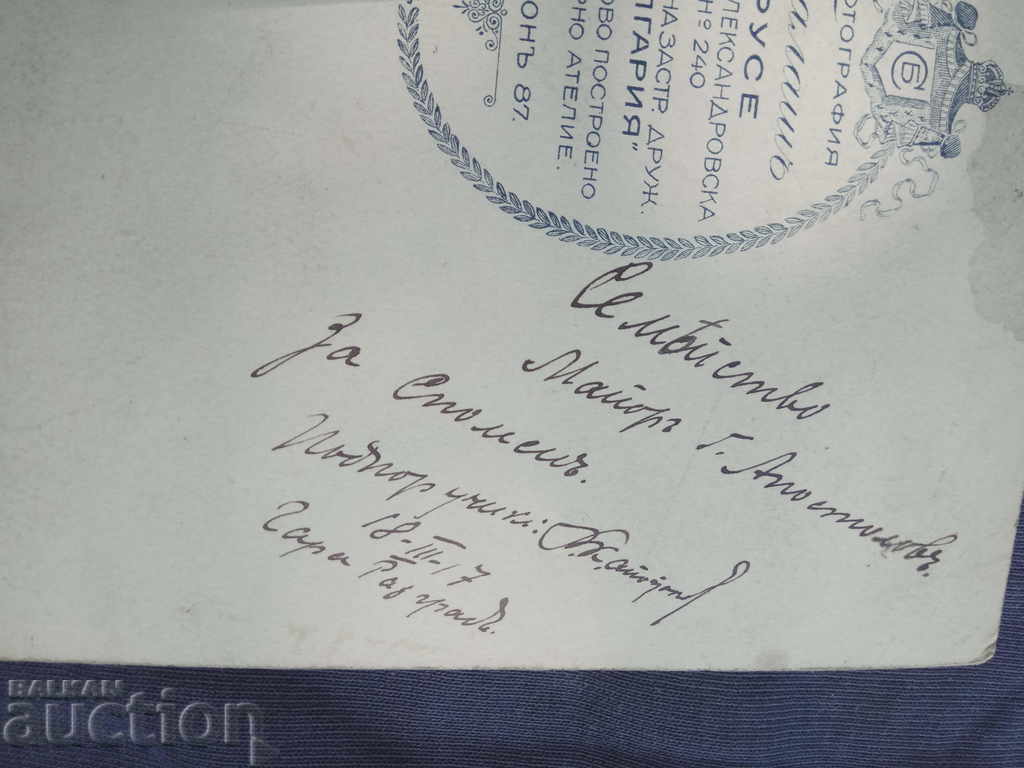 ФОТОГРАФИЯ
РУСЕ
ЛЕКСАНДРОВСКА
№ 240
НАЗАСТР. ДРУЖ.
ЛГАРИЯ"
ОВО ПОСТРОЕНО
РНО АТЕЛИЕ.
ОНЪ 87.
СБ
Семѣйство
Майоръ Г. Апостоловъ.
За
Споменъ.
Подпоручикъ:
18-III-17
Гара Разградъ.
BALKAN
auction